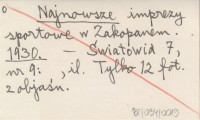 Najnowsze imprezy
sportowe w Zakopanem.
1930. – Światowid 7,
nr 9: , il. Tylko 12 fot.
z objaśn.